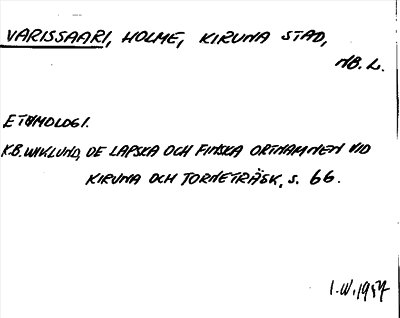 VARISSAARI, HOLME, KIRUNA STAD,
NB. L.
ETYMOLOGI.
K.B. WIKLUND, DE LAPSKA OCH FINSKA ORTNAMNEN VID
KIRUNA OCH TORNETRÄSK, S. 66.
I.W. 1957